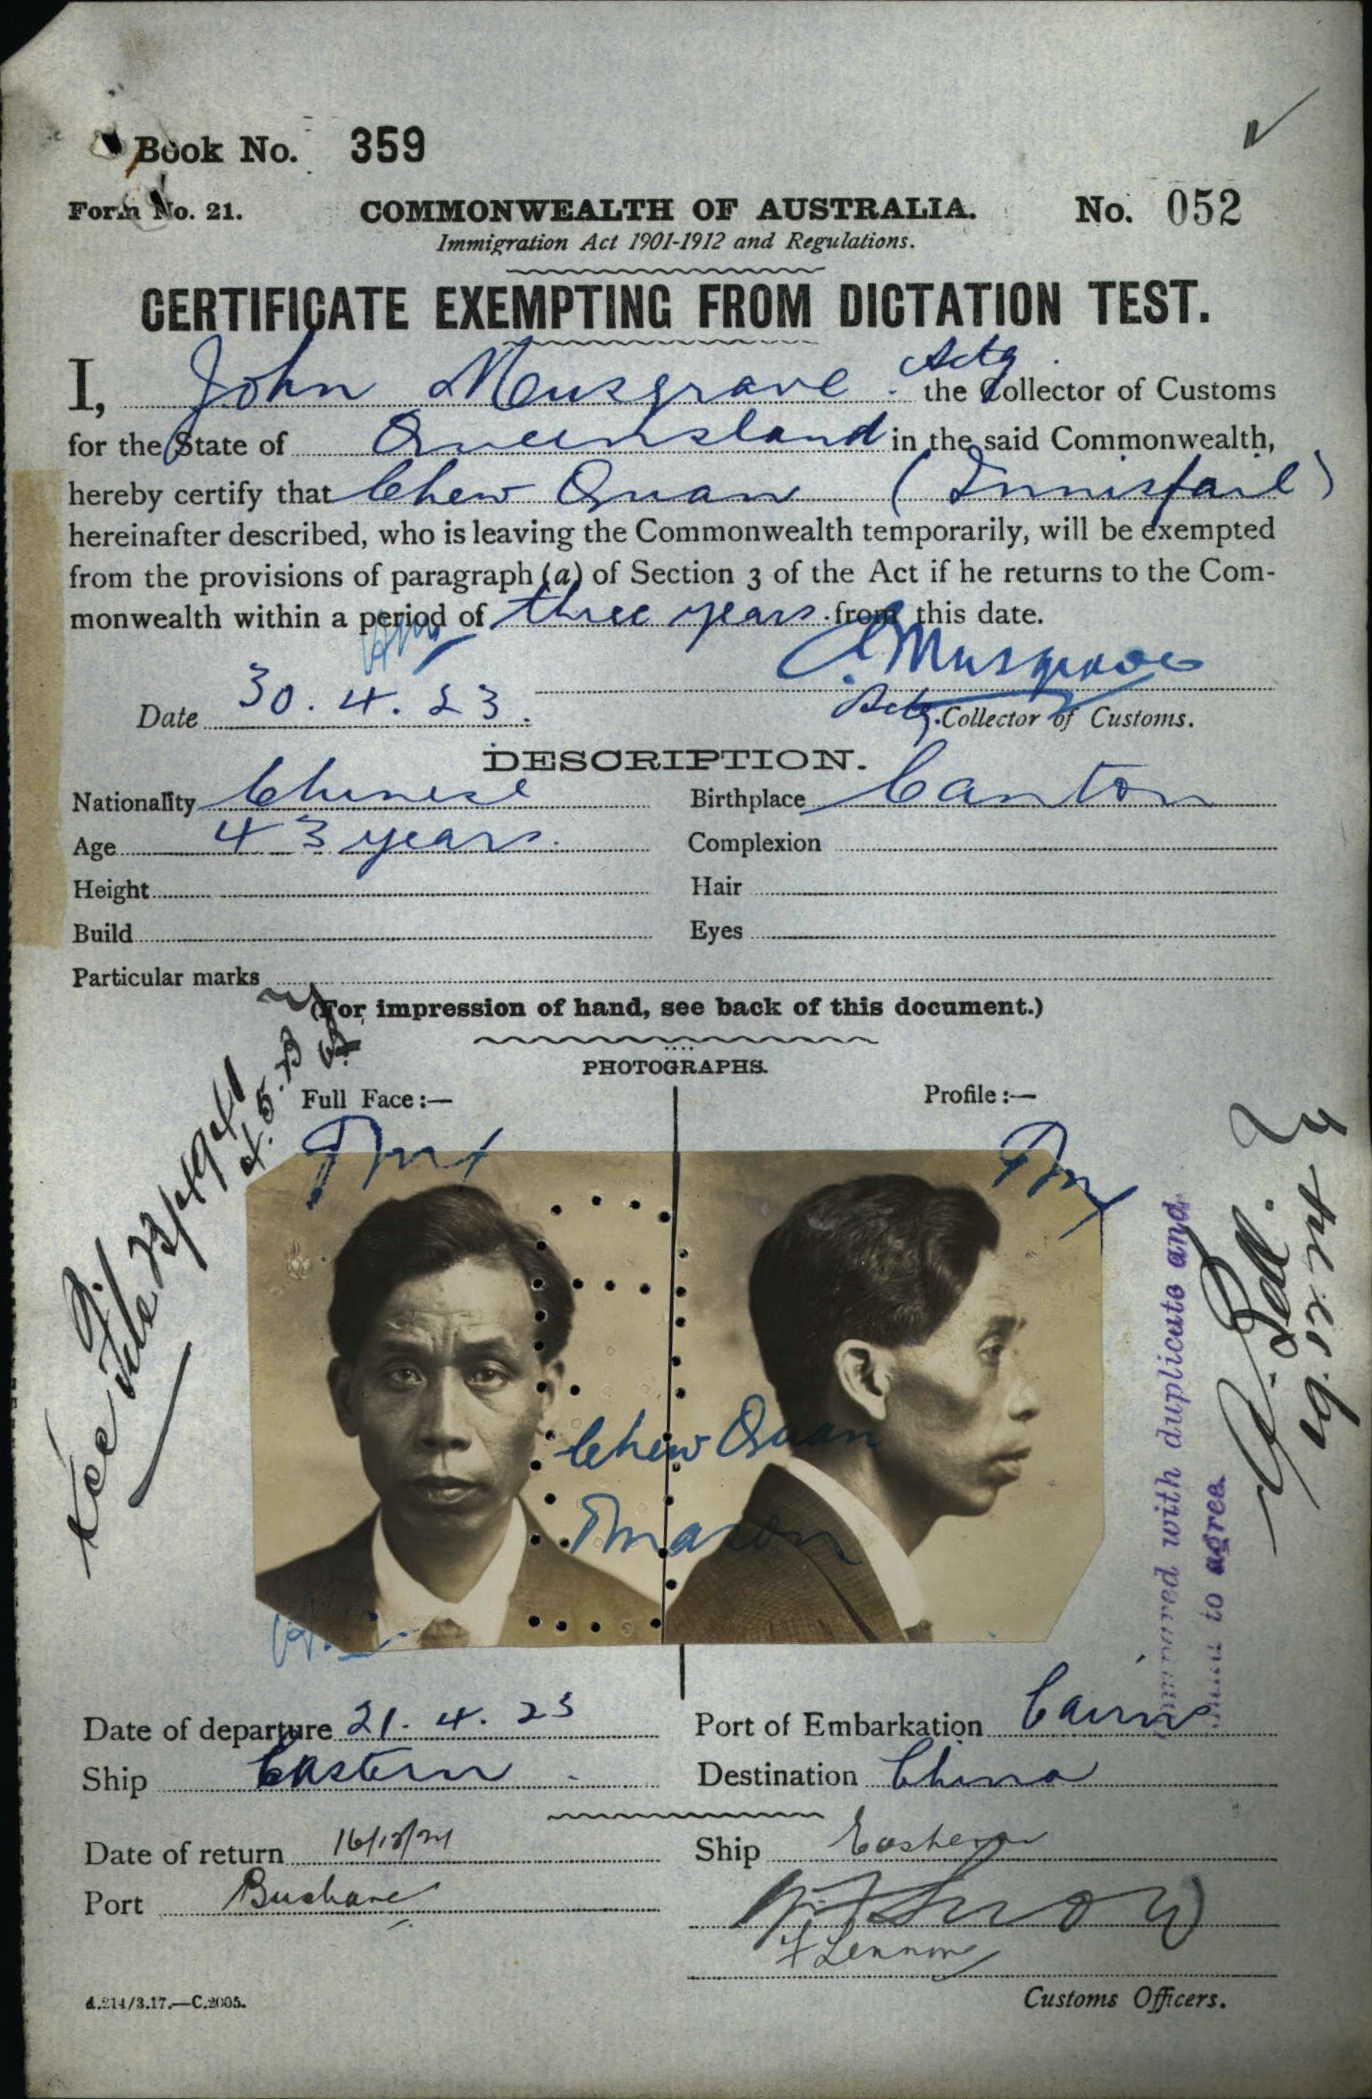 Book No. 359
Form No. 21. COMMONWEALTH OF AUSTRALIA. No. 052
Immigration Act 1901-1912 and Regulations.
CERTIFICATE EXEMPTING FROM DICTATION TEST.
Actg
I, John Musgrave the Collector of Customs
for the State of Queensland in the said Commonwealth,
hereby certify that Chew Quan (Innisfail)
hereinafter described, who is leaving the Commonwealth temporarily, will be exempted
from the provisions of paragraph (a) of Section 3 of the Act if he returns to the Com-
monwealth within a period of three years from this date.
Musgrave
Date 30.4.23. Actg. Collector of Customs.
DESCRIPTION.
Nationality Chinese Birthplace Canton
Age 43 years. Complexion
Height Hair
Build Eyes
Particular marks
(For impression of hand, see back of this document.)
PHOTOGRAPHS.
Full Face:— Profile:—
Chew Quan
with duplicate and
to agree.
19.12.24
Date of departure 21.4.23 Port of Embarkation Cairns
Ship Eastern Destination China
Date of return 16/12/24 Ship Eastern
Port Brisbane
Customs Officers.
A.214/3.17.—C.2005.